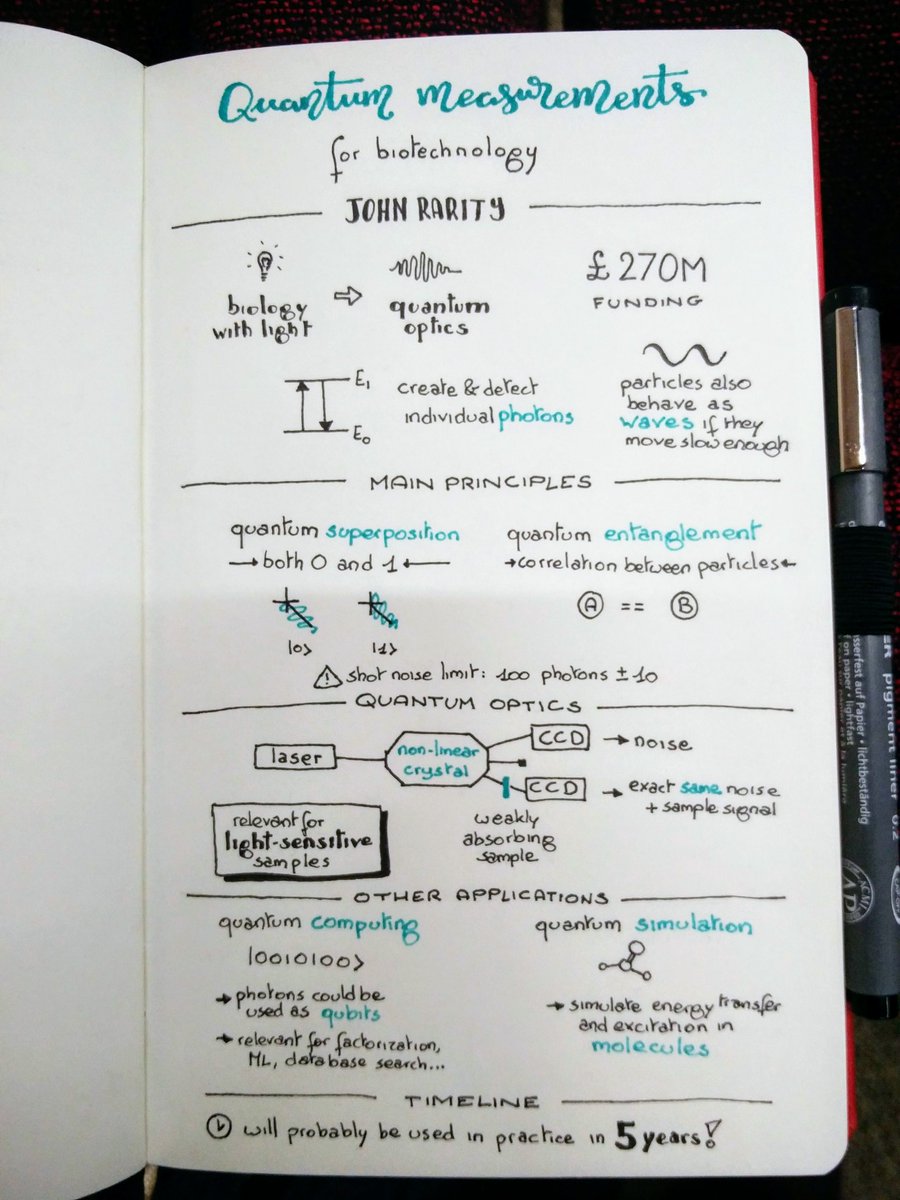 Quantum measurements
for biotechnology
JOHN RARITY
biology
with light
⇨
quantum
optics
£270M
FUNDING
E₁
E₀
create & detect
individual photons
particles also
behave as
waves if they
move slow enough
MAIN PRINCIPLES
quantum superposition
→ both 0 and 1 ←
|0>
|1>
quantum entanglement
→correlation between particles←
A == B
⚠ shot noise limit: 100 photons ± 10
QUANTUM OPTICS
laser
non-linear
crystal
CCD → noise
CCD → exact same noise
+ sample signal
weakly
absorbing
sample
relevant for
light-sensitive
samples
OTHER APPLICATIONS
quantum computing
|0010100>
→ photons could be
used as qubits
→ relevant for factorization,
ML, database search...
quantum simulation
→ simulate energy transfer
and excitation in
molecules
TIMELINE
will probably be used in practice in 5 years!
pigment liner 0.2
wasserfest auf Papier • lichtbeständig
on paper • lightfast
AP